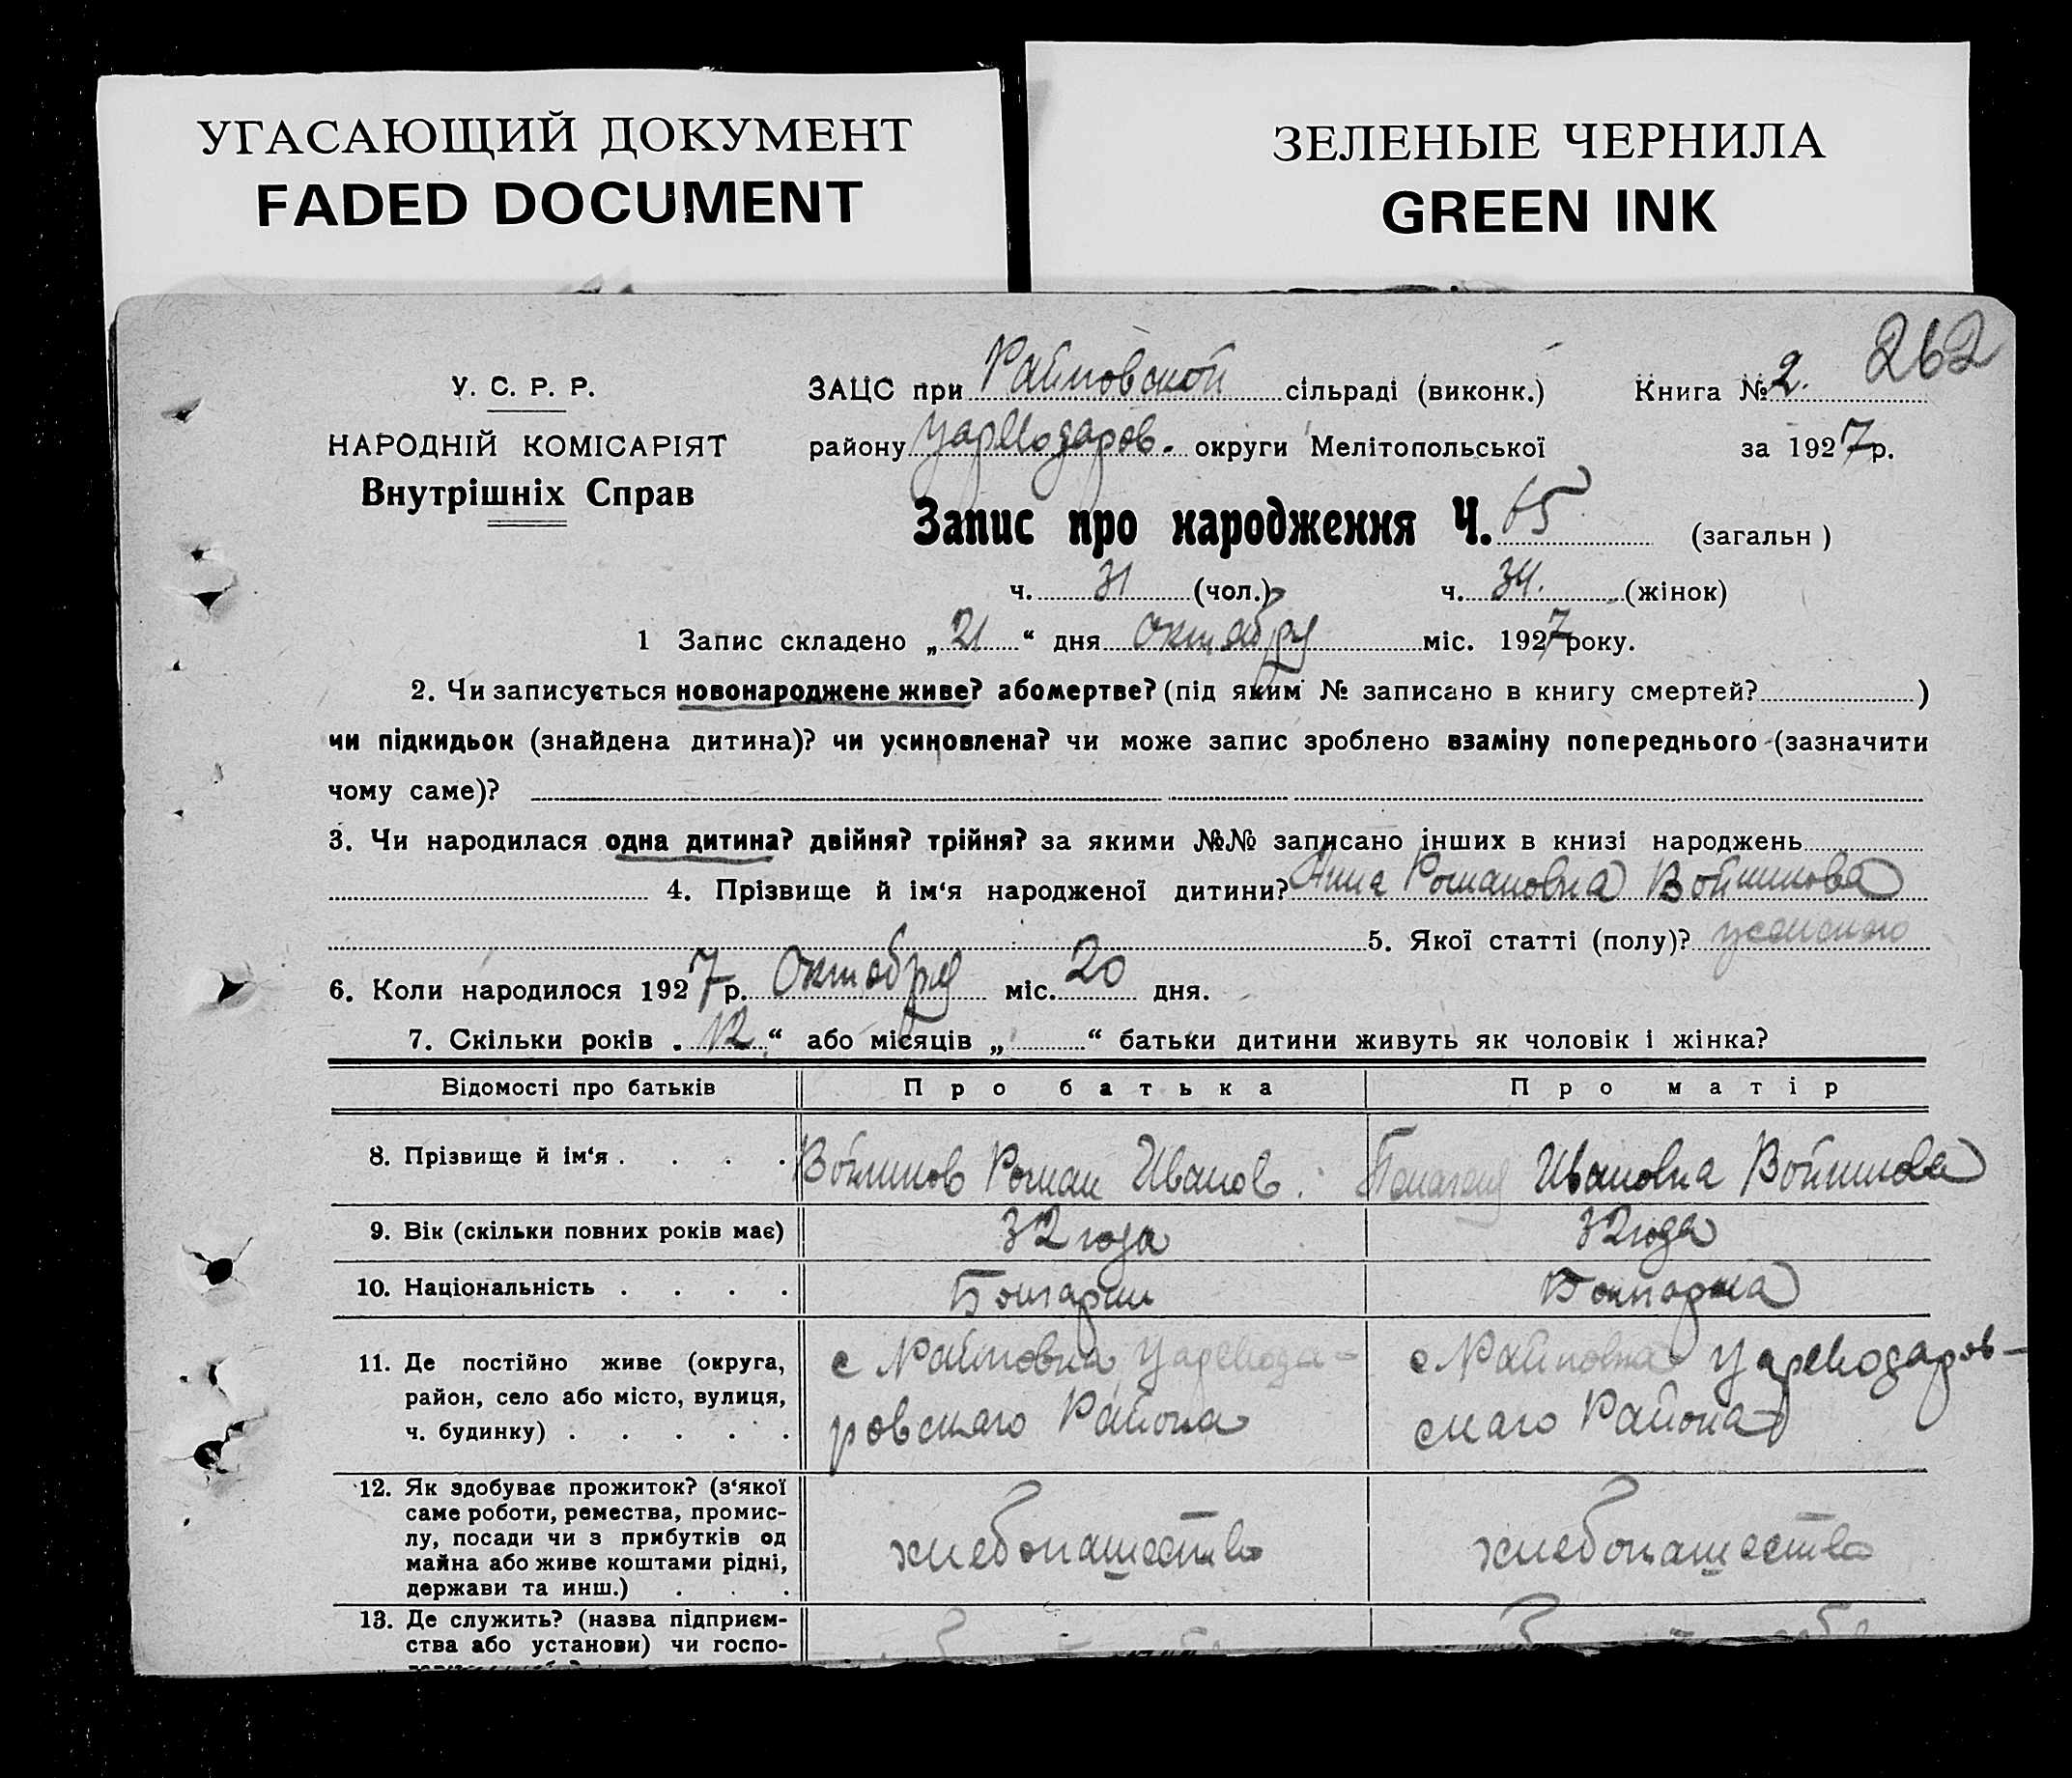 УГАСАЮЩИЙ ДОКУМЕНТ
FADED DOCUMENT
ЗЕЛЕНЫЕ ЧЕРНИЛА
GREEN INK
262
У. С. Р. Р.
НАРОДНІЙ КОМІСАРІЯТ
Внутрішніх Справ
ЗАЦС при Райновской сільраді (виконк.) Книга № 2.
району Цареводаров. округи Мелітопольської за 1927 р.
Запис про народження Ч. 65 (загальн )
ч. 31 (чол.) ч. 34. (жінок)
1 Запис складено „ 21 “ дня октября міс. 1927 року.
2. Чи записується новонароджене живе? або мертве? (під яким № записано в книгу смертей? )
чи підкидьок (знайдена дитина)? чи усиновлена? чи може запис зроблено взаміну попереднього (зазначити
чому саме)?
3. Чи народилася одна дитина? двійня? трійня? за якими №№ записано інших в книзі народжень
4. Прізвище й ім‘я народженої дитини? Анна Романовна Войникова
5. Якої статті (полу)? женского
6. Коли народилося 1927 р. Октября міс. 20 дня.
7. Скільки років „ 12 “ або місяців „ “ батьки дитини живуть як чоловік і жінка?
Відомості про батьків Про батька Про матір
8. Прізвище й ім‘я . . . . Войников Роман Иванов. Ивановна Войникова
9. Вік (скільки повних років має) 32 года 32 года
10. Національність . . . . Болгарин Болгарка
11. Де постійно живе (округа, район, село або місто, вулиця, ч. будинку) . . . . .
с Райновка Царевода-
ровскаго Района
с Райновка Цареводаров-
скаго Района
12. Як здобуває прожиток? (з‘якої
саме роботи, ремества, промис-
лу, посади чи з прибутків од
майна або живе коштами рідні,
держави та инш.) . . .
хлебопашество хлебопашество
13. Де служить? (назва підприєм-
ства або установи) чи госпо-